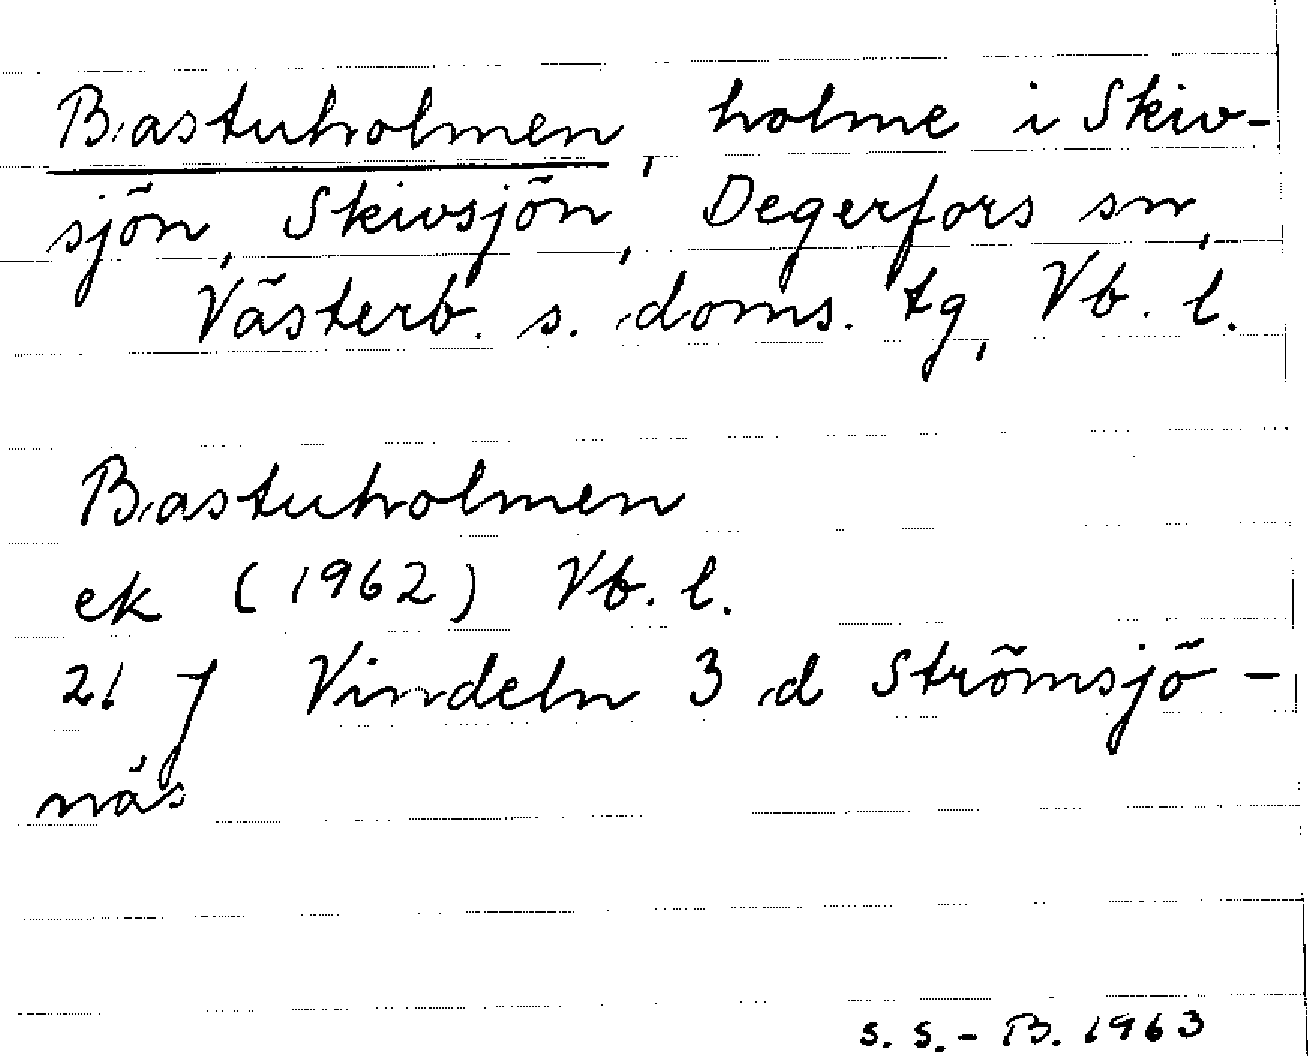 Bastuholmen, holme i Skiv-
sjön, Skivsjön, Degerfors sn,
Västerb. s. doms. tg, Vb. l.
Bastuholmen
ek (1962) Vb. l.
21 J Vindeln 3 d Strömsjö-
näs
S. S. - B. 1963